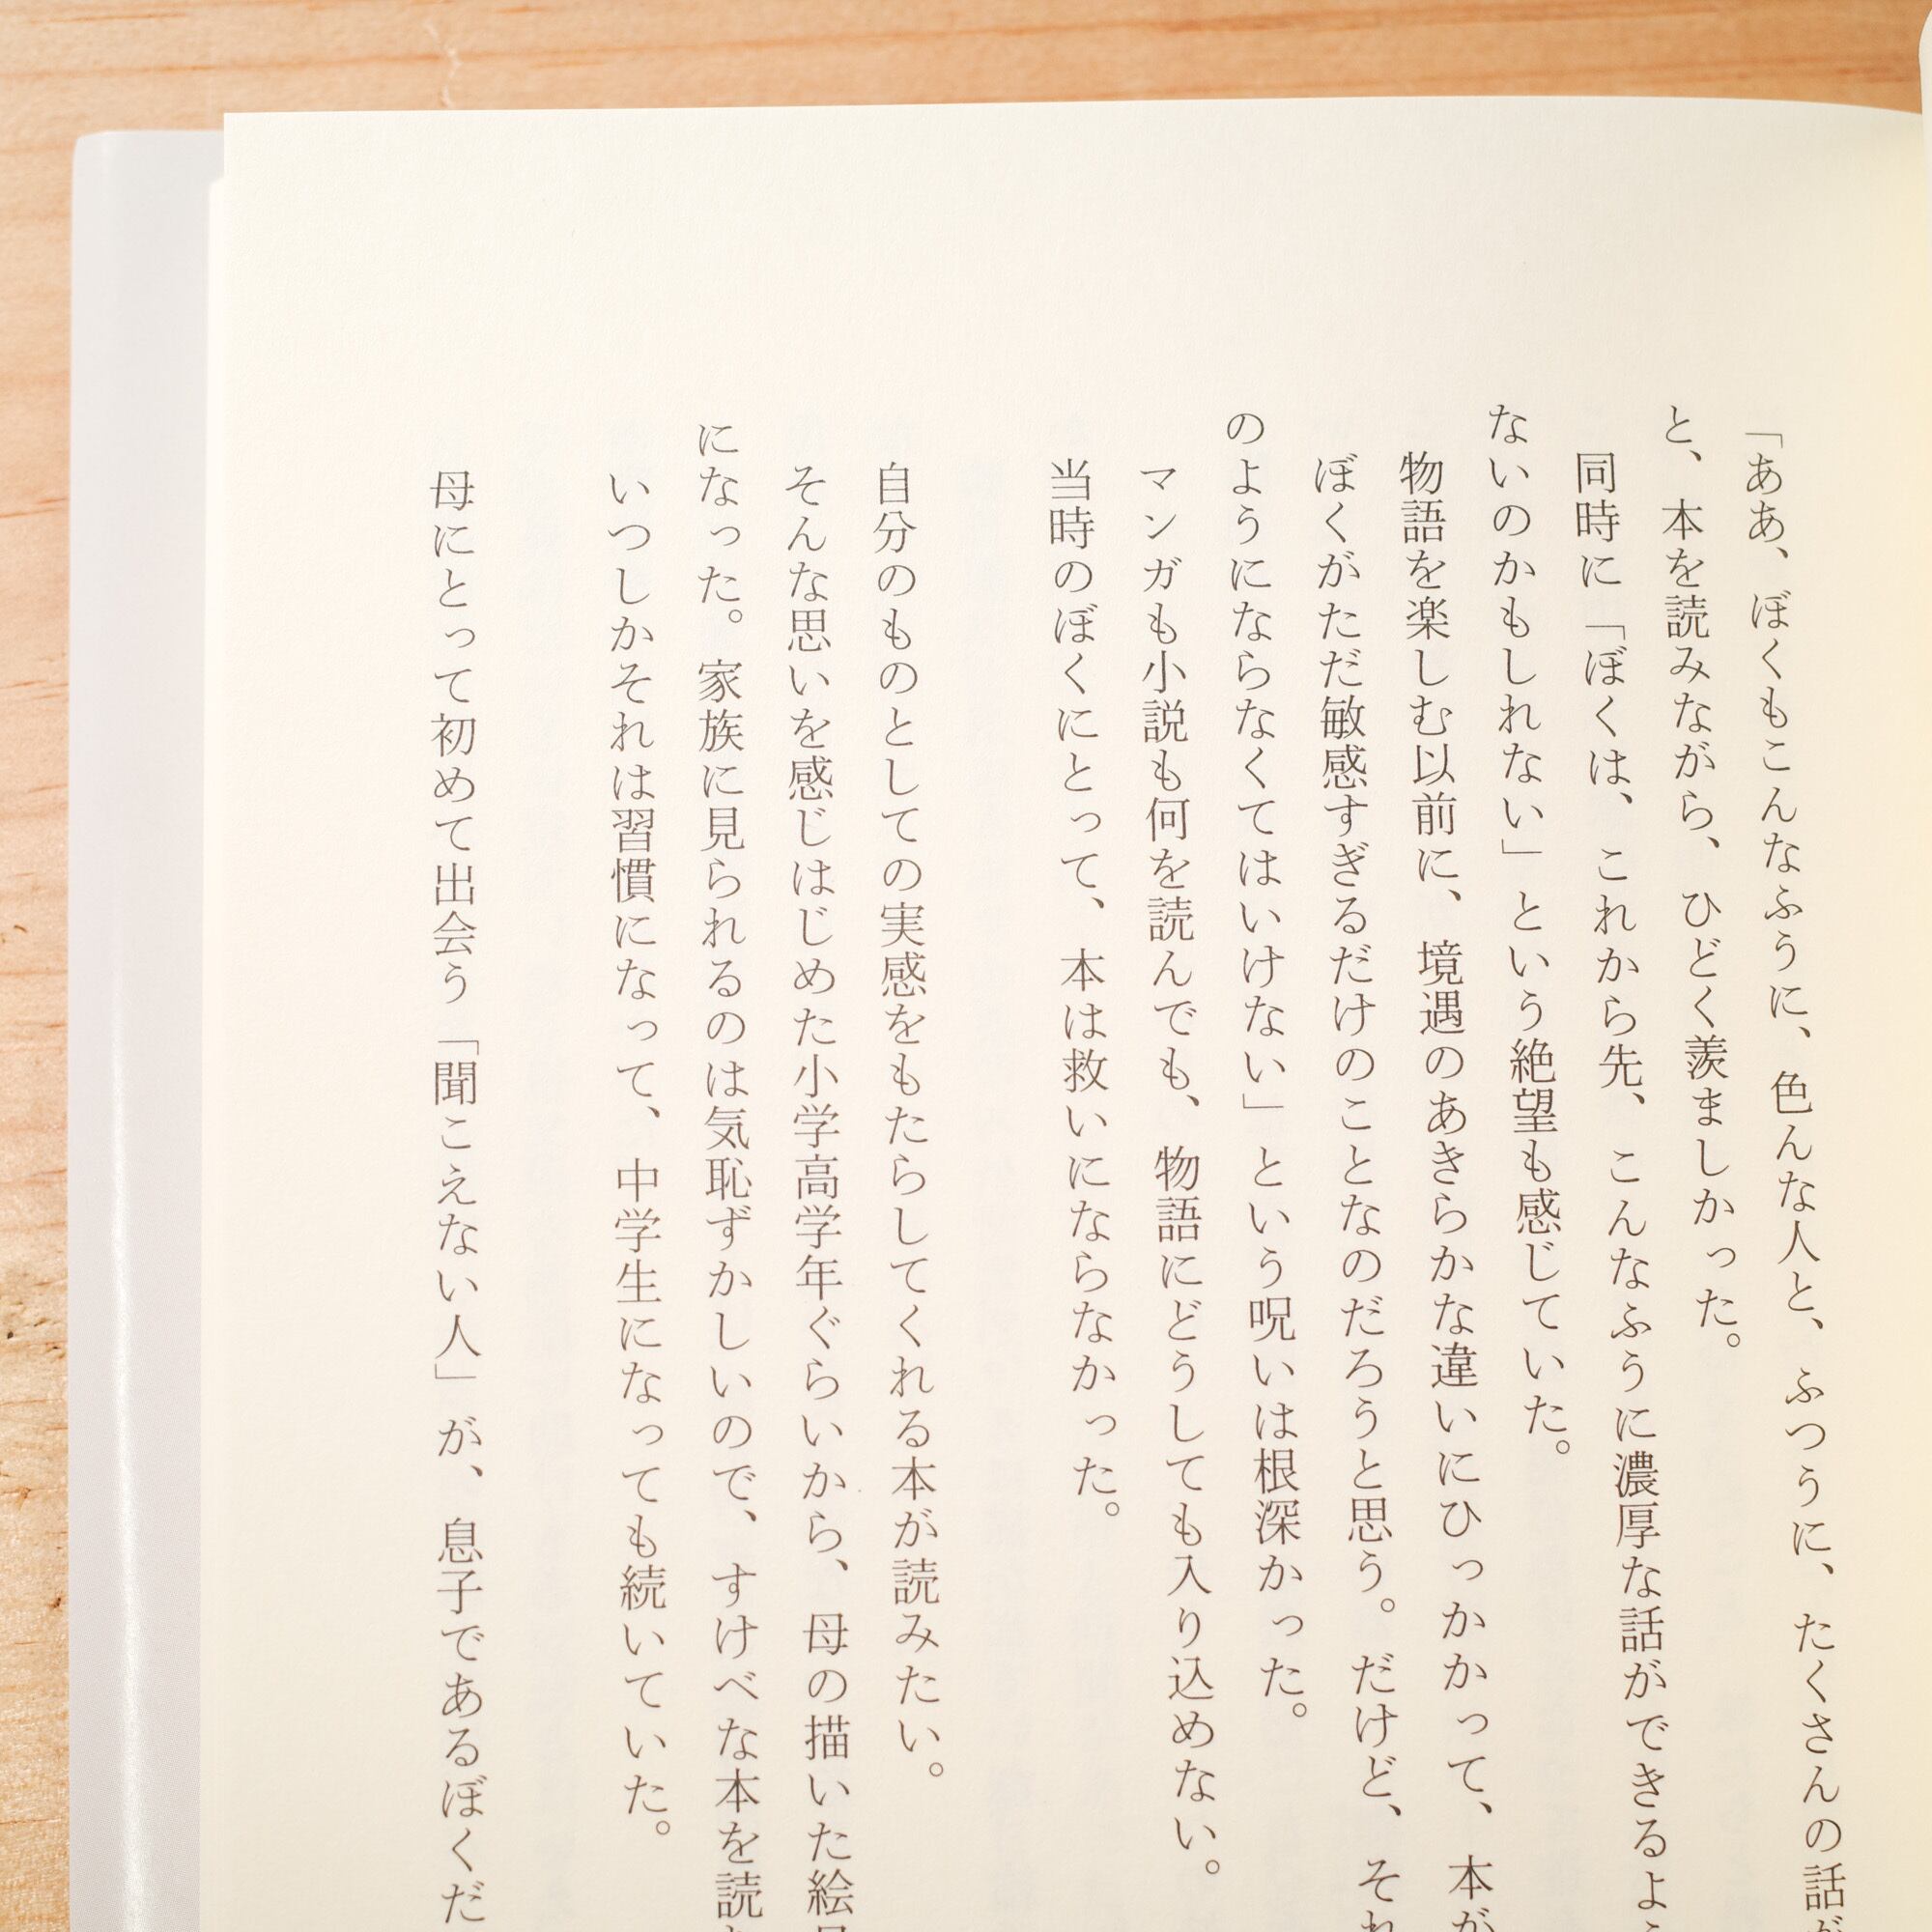 「ああ、ぼくもこんなふうに、色んな人と、ふつうに、たくさんの話が
と、本を読みながら、ひどく羨ましかった。
同時に「ぼくは、これから先、こんなふうに濃厚な話ができるよ
ないのかもしれない」という絶望も感じていた。
物語を楽しむ以前に、境遇のあきらかな違いにひっかかって、本が
ぼくがただ敏感すぎるだけのことなのだろうと思う。だけど、それ
のようにならなくてはいけない」という呪いは根深かった。
マンガも小説も何を読んでも、物語にどうしても入り込めない。
当時のぼくにとって、本は救いにならなかった。
自分のものとしての実感をもたらしてくれる本が読みたい。
そんな思いを感じはじめた小学高学年ぐらいから、母の描いた絵
になった。家族に見られるのは気恥ずかしいので、すけべな本を読
いつしかそれは習慣になって、中学生になっても続いていた。
母にとって初めて出会う「聞こえない人」が、息子であるぼくだ